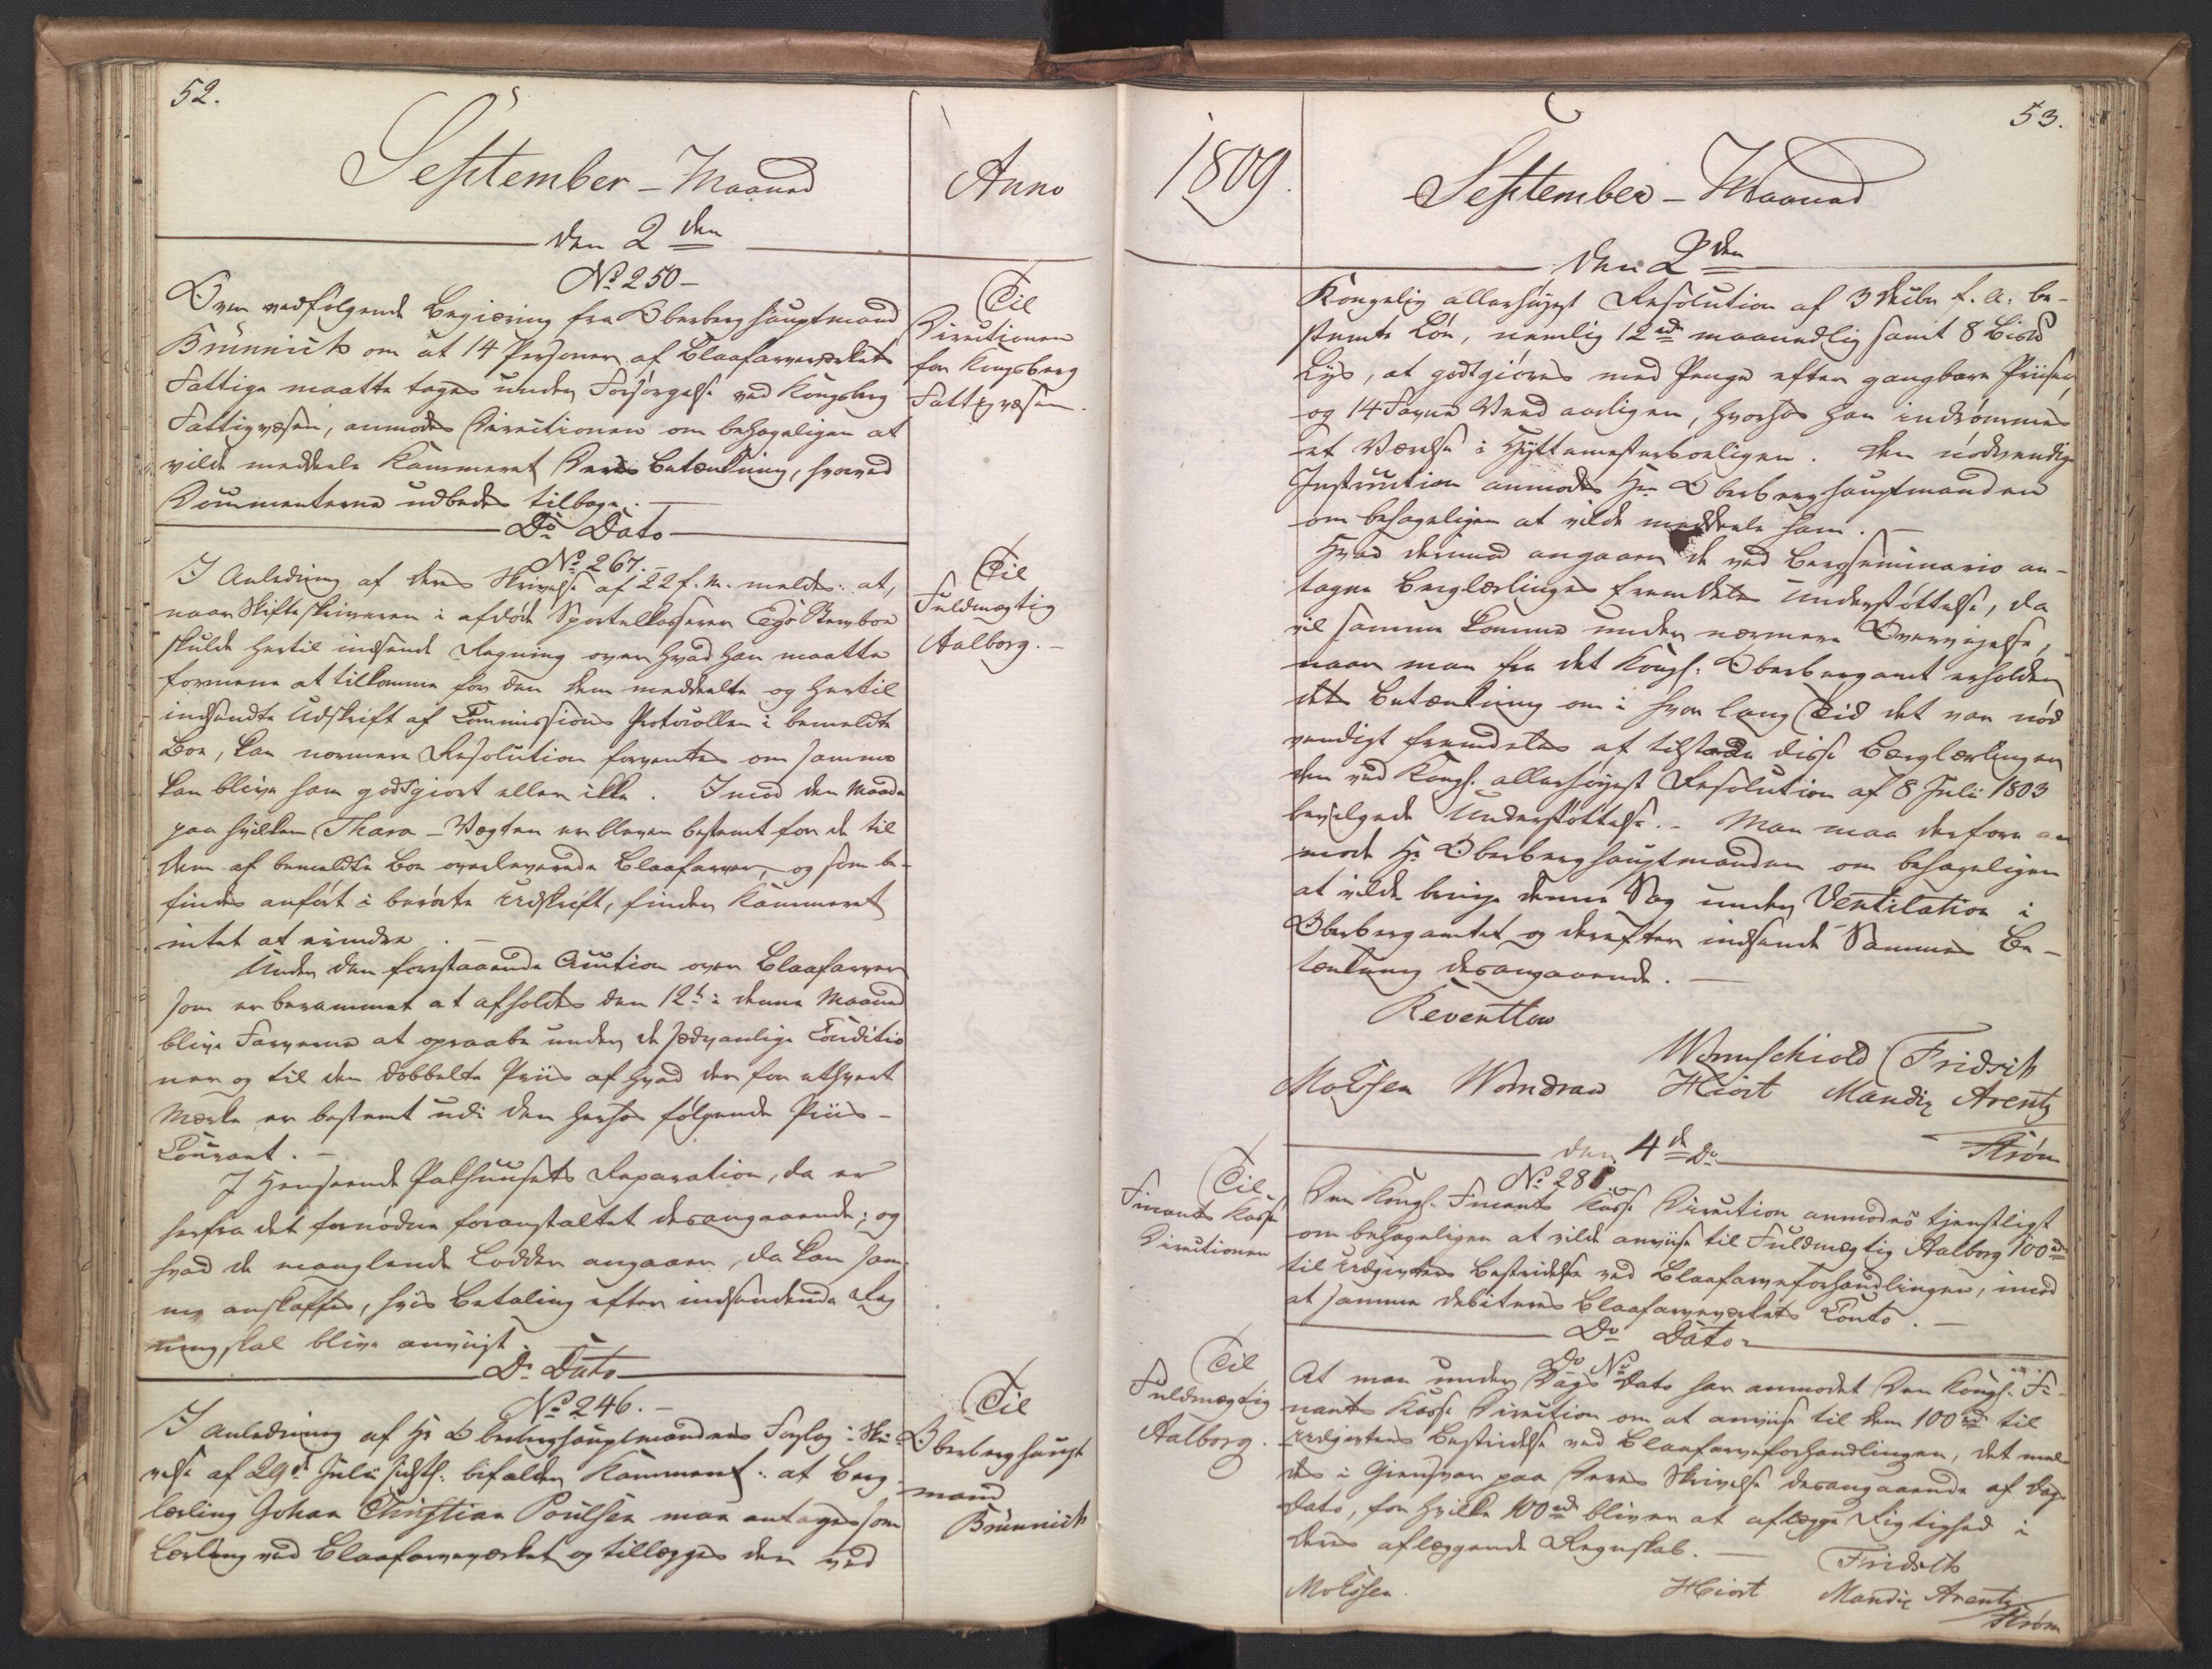 52.
September - Maaned
Anno
den 2den
No 250 -
Over vedfølgende Begiæring fra Oberberghauptmand
Brünnich om at 14 Personer af Blaafarveværkets
Fattige maatte tages under Forsørgelse ved Kongsberg
Fattigvæsen, anmodes Directionen om behageligen at
vilde meddeele Kammeret Deres Betænkning, hvorved
Documenterne udbedes tilbage. -
Til
Directionen
for Kongsberg
Fattigvæsen.
Do Dato
No 267. -
I Anledning af Deres Skrivelse af 22 f. M. meldes: at,
naar Skifteskriveren i afdøde Sportelkasserer Bemboe
skulde hertil indsende Regning over hvad han maatte
formene at tilkomme for den Dem meddeelte og hertil
indsendte Udskrift af Commissions Protocollen i bemeldte
Boe, kan nærmere Resolution forventes om samme
kan blive ham godtgiort eller ikke. Imod den Maade
paa hvilken Thara-Vægten er bleven bestemt for de til
Dem af bemeldte Boe overleverede Blaafarver, og som be-
findes anført i berørte Udskrift, finder Kammeret
intet at erindre. -
Under den forestaaende Auction over Blaafarver
som er berammet at afholdes den 12te i denne Maaned
blive Farverne at opraabe under de sædvanlige Conditio
ner og til den dobbelte Priis af hvad der for ethvert
Mærke er bestemt udi den herhos følgende Priis-
Courant. -
I Henseende Pakhuusets Reparation, da er
herfra det fornødne foranstaltet desangaaende; og
hvad de manglende Lodder angaaer, da kan sam-
me anskaffes, hvis Betaling efter indsendende Reg
ning skal blive anviist.
Til
Fuldmægtig
Aalborg. -
Do Dato
No 246. -
I Anledning af Hr Oberberghauptmandens Forslag i Skri-
velse af 29de Julii sidstl. bifalder Kammeret: at Berg-
lærling Johan Christian Poulsen maa antages som
Lærling ved Blaafarveværket og tillægges den ved
Til
Oberberghaupt
mand
Brünnich
1809.
53.
September - Maaned
den 2den
Kongelig allerhøyest Resolution af 3 Decbr f. A. be-
stemte Løn, nemlig 12 rd maanedlig samt 8 Bisd
Lys, at godtgiøres med Penge efter gangbare Priser,
og 14 Favne Veed aarligen, hvorhos han indrømmes
et Værelse i Hyttemesterboeligen. Den nødvendige
Instruction anmodes Hr Oberberghauptmanden
om behageligen at vilde meddeele ham. -
Hvad derimod angaaer de ved Bergseminario an-
tagne Berglærlinges fremdeles Understøttelse, da
vil samme komme under nærmere Overveielse,
naar man fra det Kongl: Oberbergamt erholder
dets Betænkning om i hvor lang Tid det var nød
vendigt fremdeles at tilstaae disse Berglærlinger
den ved Kongl. allerhøyest Resolution af 8 Julii 1803
bevilgede Understøttelse. - Man maa derfore an
mode Hr Oberberghauptmanden om behageligen
at vilde bringe denne Sag under Ventilation i
Oberbergamtet og derefter indsende Sammes Be-
tænkning desangaaende. -
Reventlow
Wormschiold Fridsch
Moessen Womdran Hiort Mandix Arentz
Strøm
den 4de Do
No 281.
Den Kongl. Finants Kasse Direction anmodes tjenstligst
om behageligen at vilde anviise til Fuldmægtig Aalborg 100 rd
til Udgivters Bestridelse ved Blaafarveforhandlingen, imod
at samme debiteres Blaafarveværkets Conto. -
Til
Finants Kasse
Directionen
Do Dato
Do No
At man under Dags Dato har anmodet Den Kongl. Fi-
nants Kasse Direction om at anviise til Dem 100 rd til
Udgivters Bestridelse ved Blaafarveforhandlingen, det mel
des i Giensvar paa Deres Skrivelse desangaaende af Dags
Dato, for hvilke 100 rd bliver at aflægge Rigtighed i
Deres aflæggende Regnskab. -
Til
Fuldmægtig
Aalborg.
Fridsch
Moessen. Hiort Mandix Arentz
Strøm